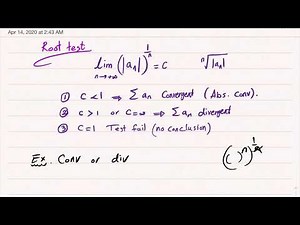 Apr 14, 2020 at 2:43 AM
Root test
lim n→∞ (|aₙ|)^(1/n) = C   ⁿ√|aₙ|
① C < 1 ⇒ Σ aₙ Convergent (Abs. conv).
② C > 1 or C=∞ ⇒ Σ aₙ divergent
③ C = 1 Test fail (no conclusion)
Ex. Conv or div   (( )ⁿ)^(1/n)